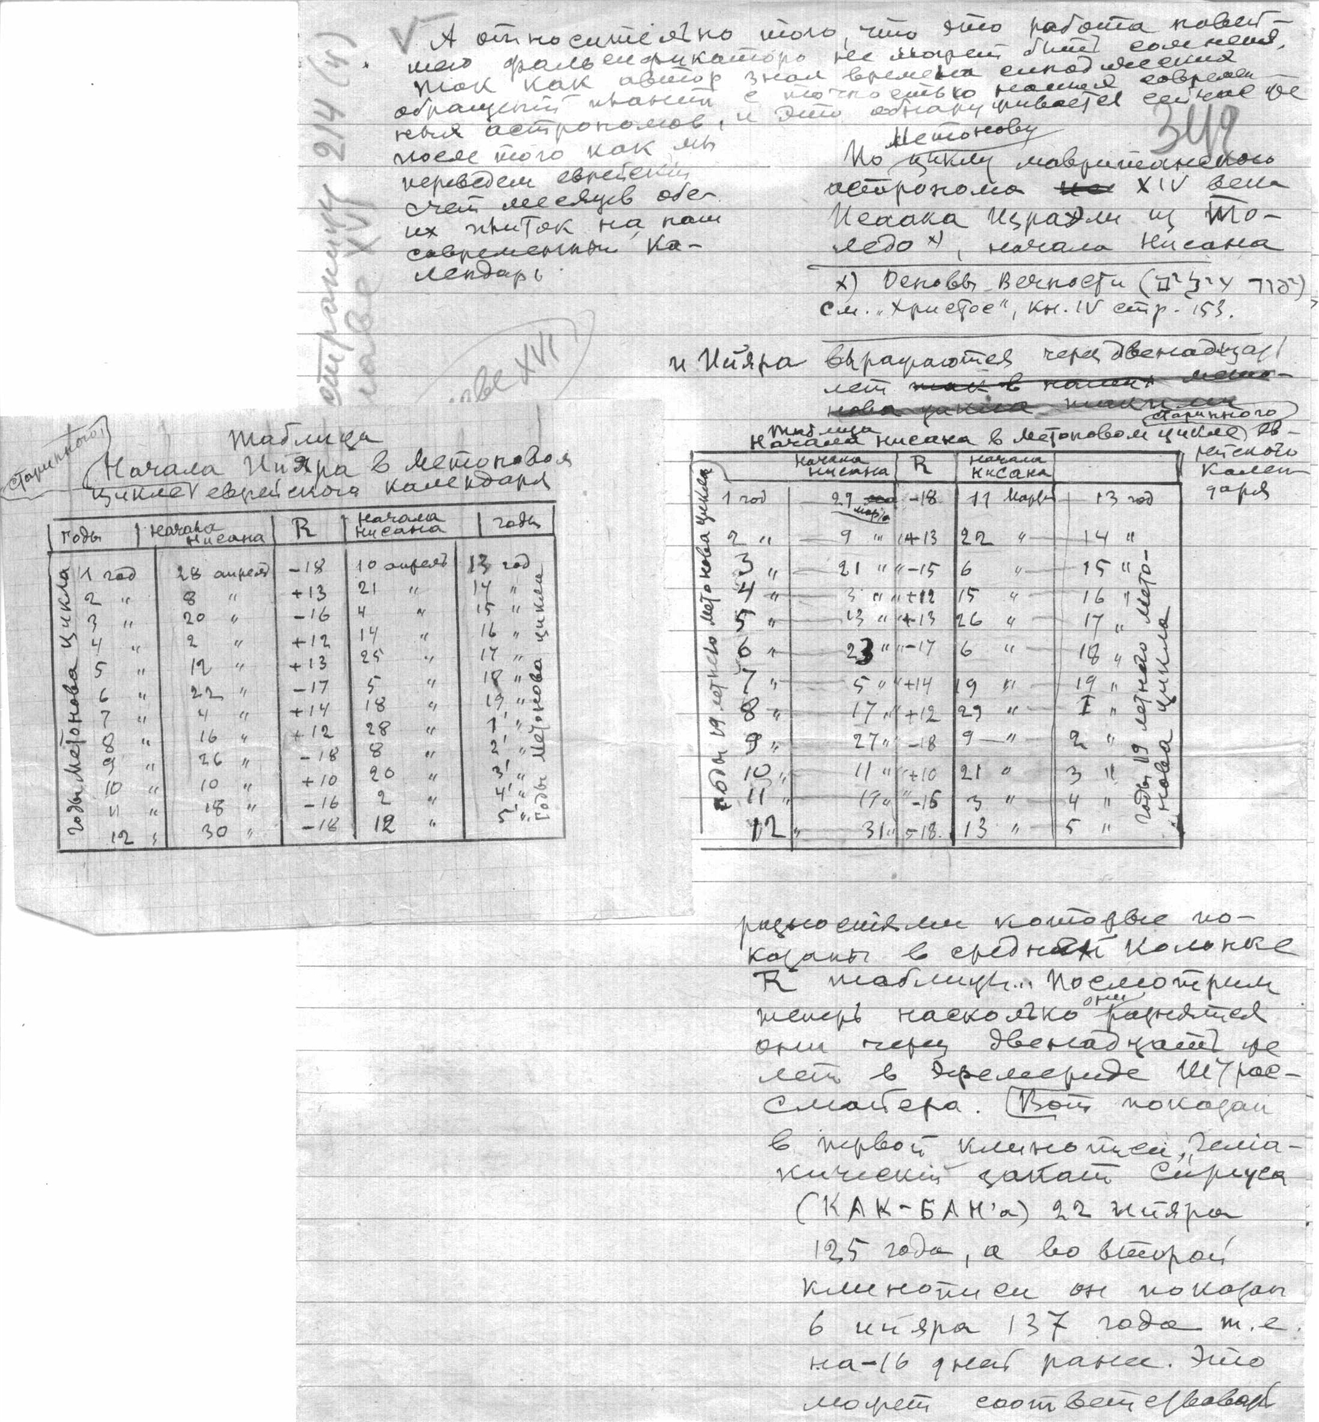 А относительно того, что это работа новей-
шего фальсификатора не может быть сомнения,
так как автор знал времена синодических
обращений планет с точностью наших современ-
ных астрономов, и это обнаруживается сейчас же
после того как мы
переведем еврейский
счет месяцев обе-
их плиток на наш
современный ка-
лендарь.
страницу 214 (4)
главе XVI
главе XVI
342
По Метонову циклу мавританского
астронома XIV века
Исаака Израэли из То-
ледо х), начала Нисана
х) Основы Вечности
См. "Христос", кн. IV стр. 153.
и Ийяра выражаются через двенадцать
лет
таблица
Начала нисана в метоновом цикле старинного ев-
рейского
кален-
даря
годы 19 летнего метонова цикла
Начала нисана | R | Начала нисана
1 год | 29 марта | -18 | 11 марта | 13 год
2 " | 9 " | +13 | 22 " | 14 "
3 " | 21 " | -15 | 6 " | 15 "
4 " | 3 " | +12 | 15 " | 16 "
5 " | 13 " | +13 | 26 " | 17 "
6 " | 23 " | -17 | 6 " | 18 "
7 " | 5 " | +14 | 19 " | 19 "
8 " | 17 " | +12 | 29 " | 1 "
9 " | 27 " | -18 | 9 " | 2 "
10 " | 11 " | +10 | 21 " | 3 "
11 " | 19 " | -16 | 3 " | 4 "
12 " | 31 " | -18 | 13 " | 5 "
годы 19 летнего мето-
нова цикла
таблица
Начала Ийяра в метоновом
цикле старинного еврейского календаря
годы | Начала нисана | R | Начала нисана | годы
годы метонова цикла
1 год | 28 апреля | -18 | 10 апреля | 13 год
2 " | 8 " | +13 | 21 " | 14 "
3 " | 20 " | -16 | 4 " | 15 "
4 " | 2 " | +12 | 14 " | 16 "
5 " | 12 " | +13 | 25 " | 17 "
6 " | 22 " | -17 | 5 " | 18 "
7 " | 4 " | +14 | 18 " | 19 "
8 " | 16 " | +12 | 28 " | 1 "
9 " | 26 " | -18 | 8 " | 2 "
10 " | 10 " | +10 | 20 " | 3 "
11 " | 18 " | -16 | 2 " | 4 "
12 " | 30 " | -18 | 12 " | 5 "
годы метонова цикла
разностями которые по-
казаны в средней колонке
R таблицы. Посмотрим
теперь насколько они разнятся
они через двенадцать же
лет в эфемериде Штрас-
смайера. Вот показан
в первой клинописи "гелиа-
кический закат Сириуса
(КАК-БАН'а) 22 ийяра
125 года, а во второй
клинописи он показан
6 ийяра 137 года т.е.
на -16 дней ранее. Это
может соответствовать